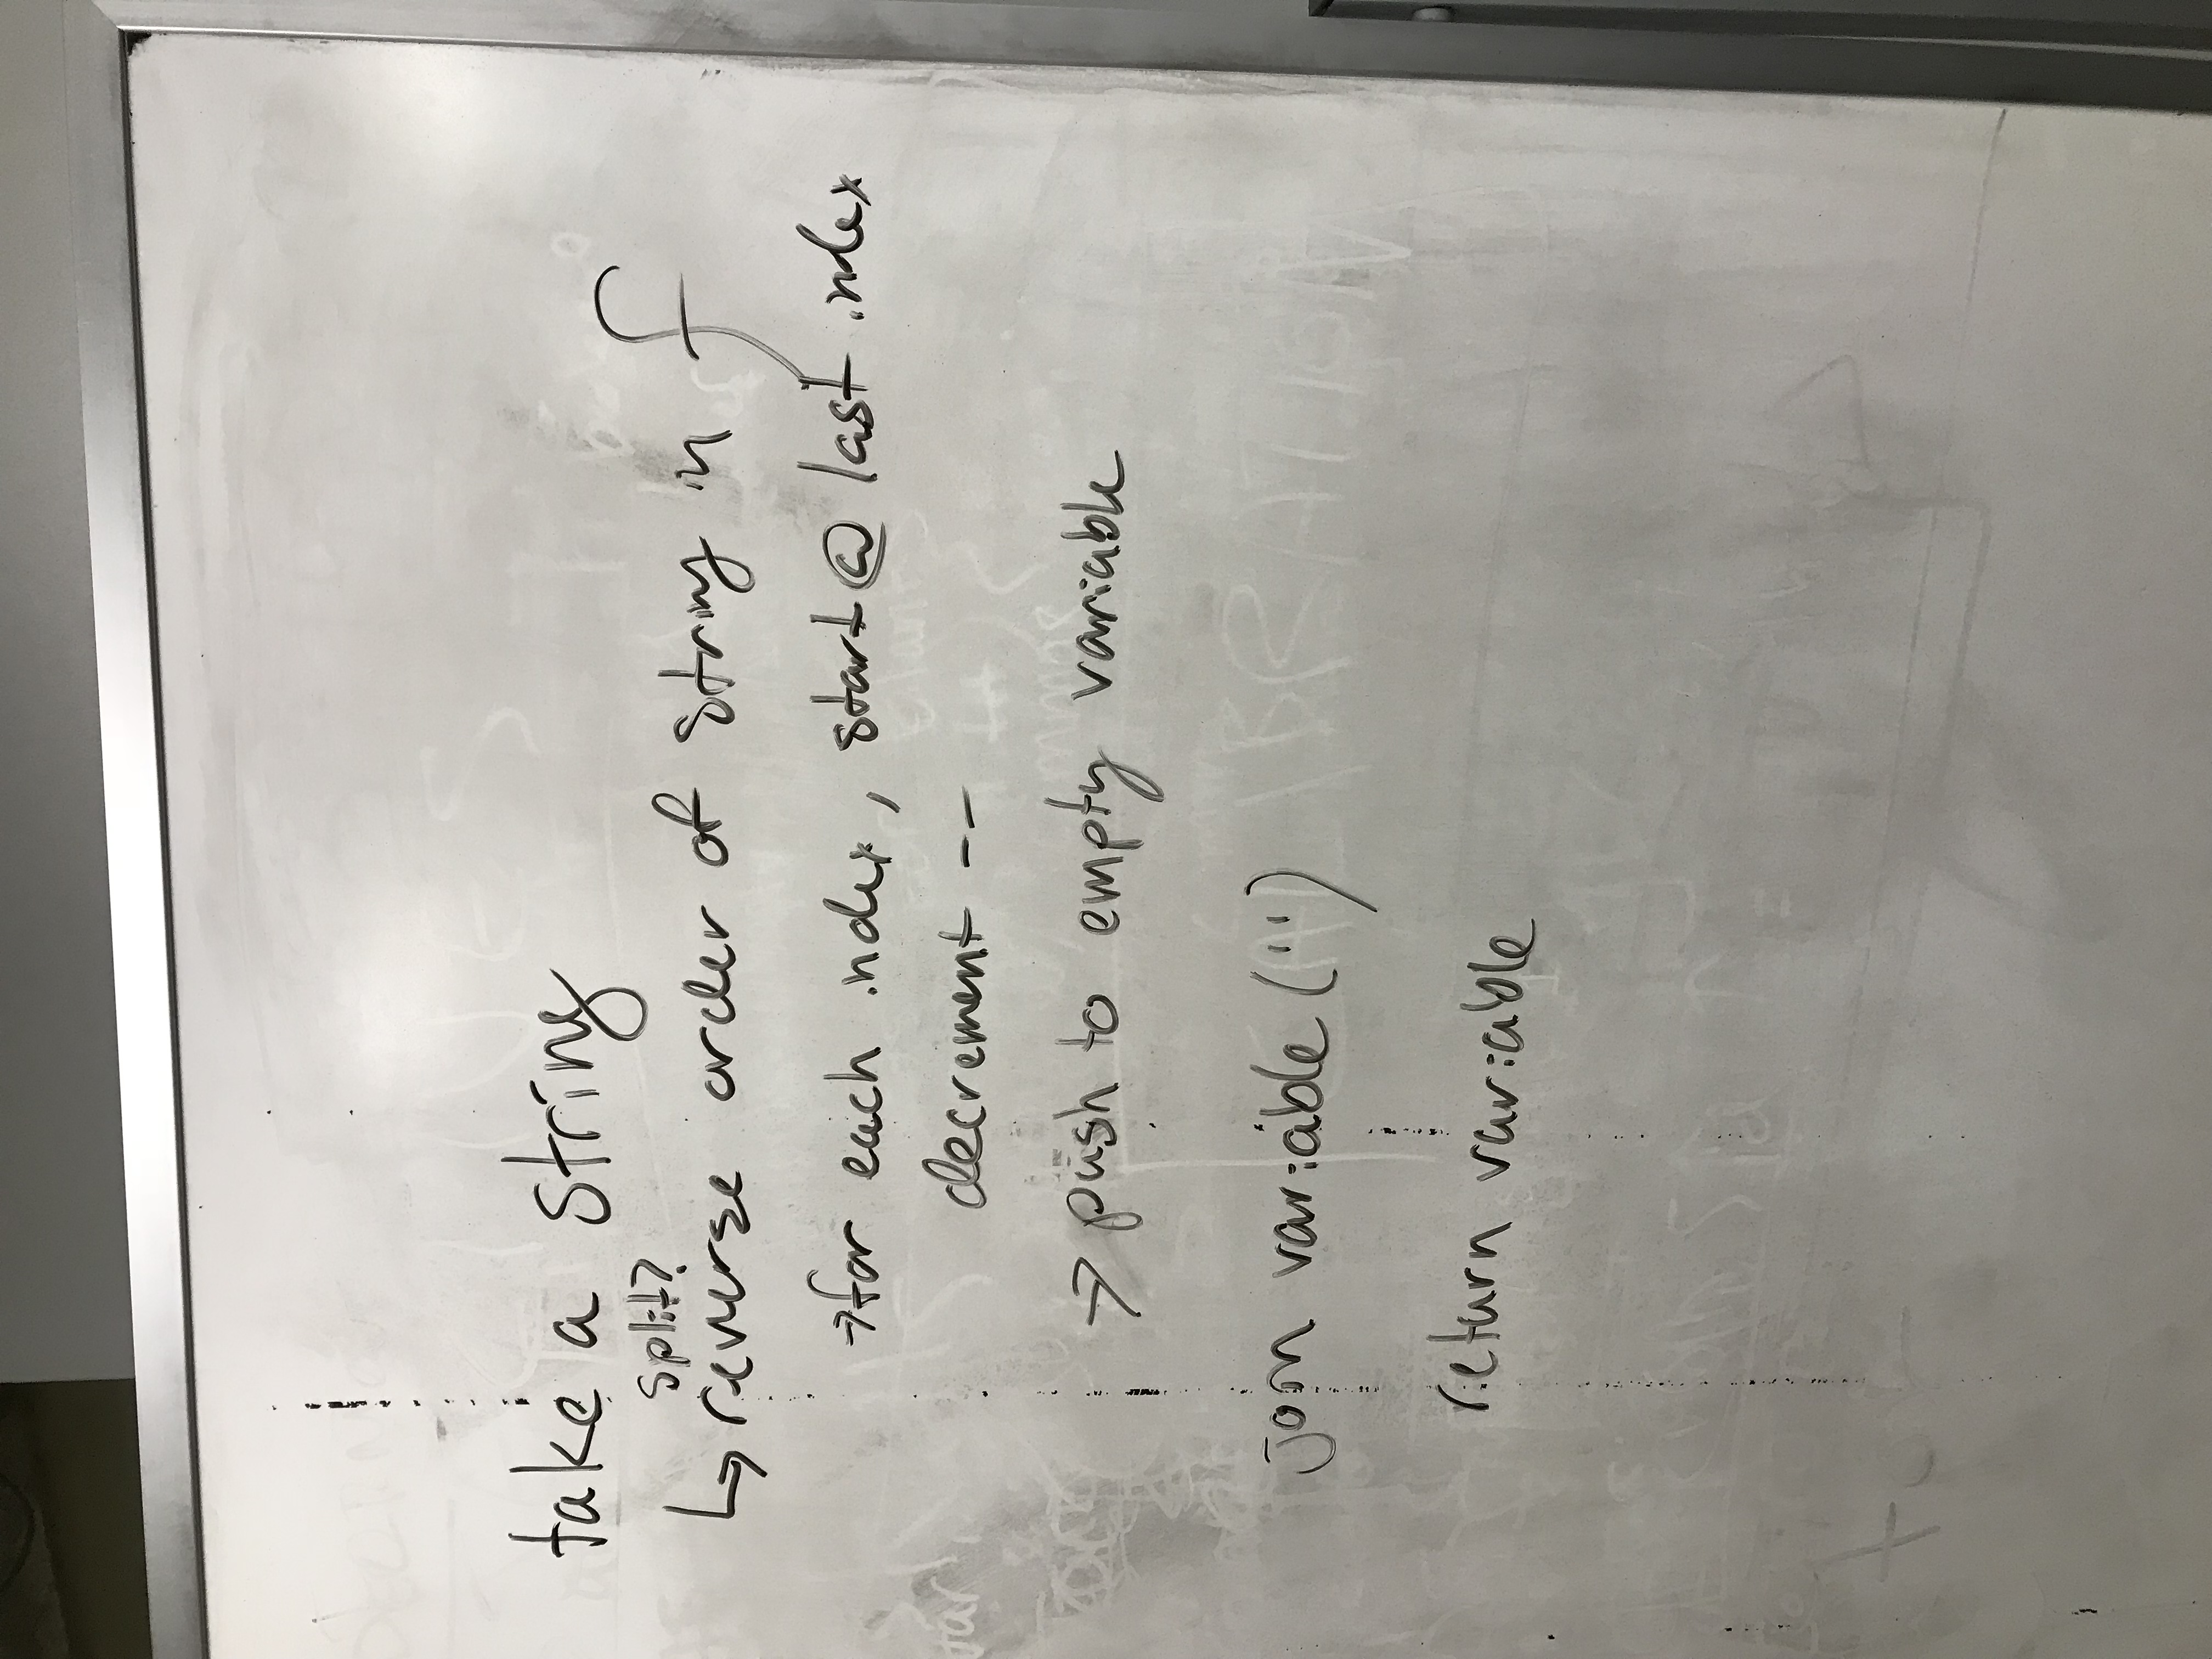 take a string
split?
↳ reverse order of string in f
→ for each index, start @ last index
decrement --
→ push to empty variable
join variable ('')
return variable